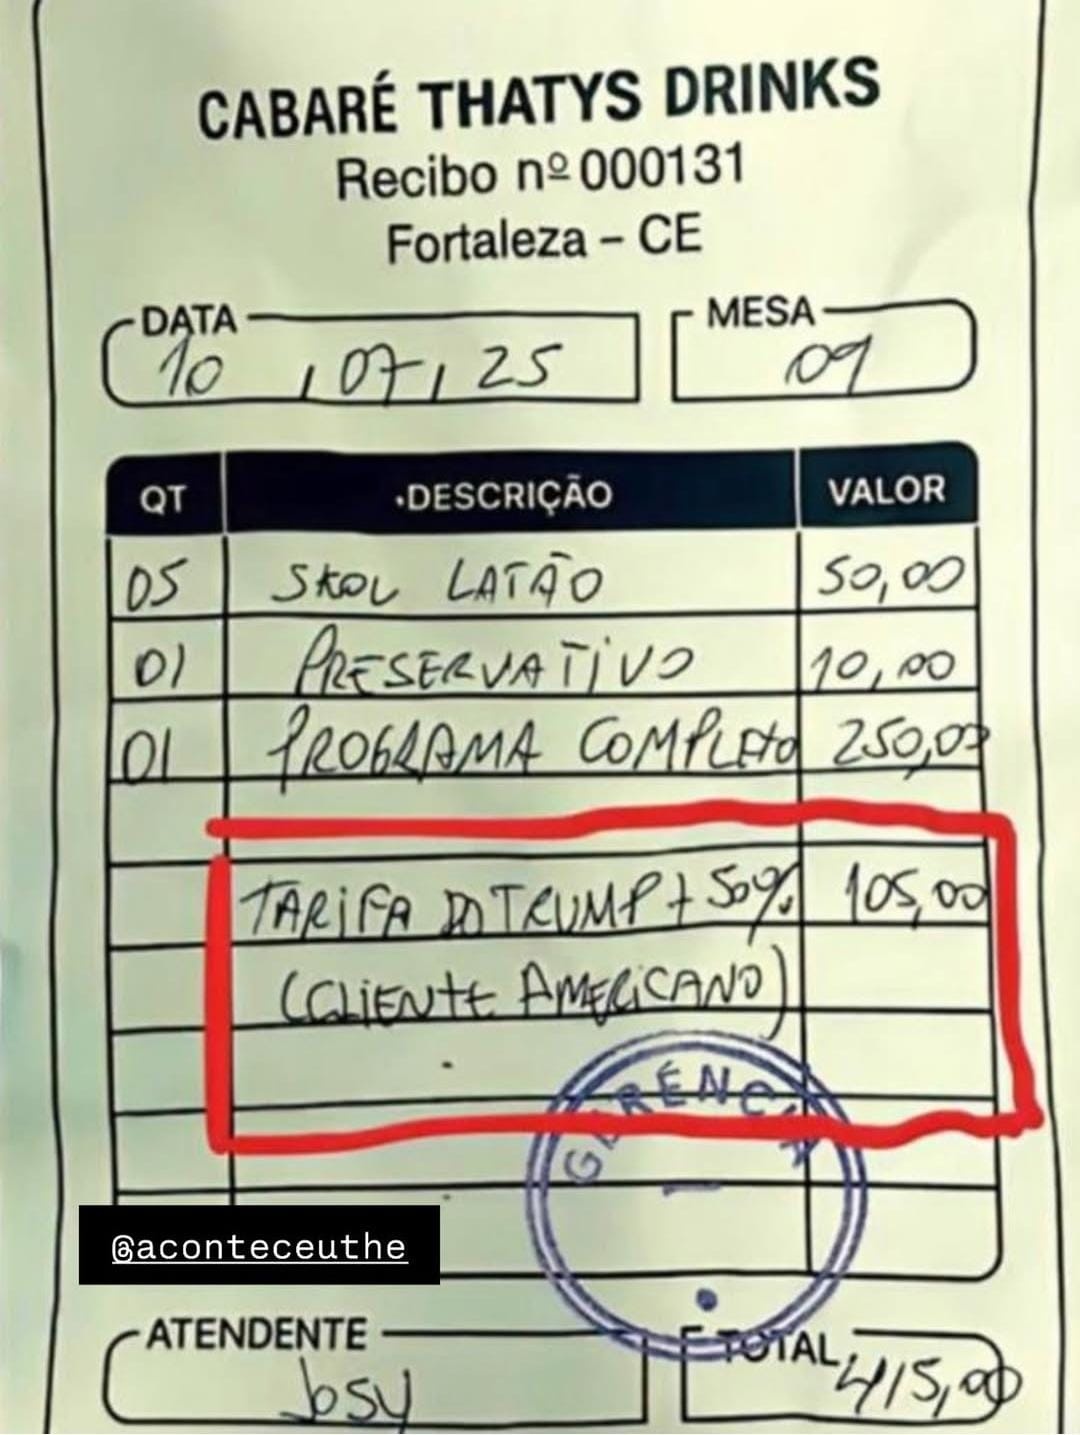 CABARÉ THATYS DRINKS
Recibo nº 000131
Fortaleza – CE
DATA MESA
10 / 07 / 25 09
QT DESCRIÇÃO VALOR
05 SKOL LATÃO 50,00
01 PRESERVATIVO 10,00
01 PROGRAMA COMPLETO 250,00
TARIFA DO TRUMP + 50% 105,00
(CLIENTE AMERICANO)
GERÊNCIA
@aconteceuthe
ATENDENTE TOTAL
Josy 415,00